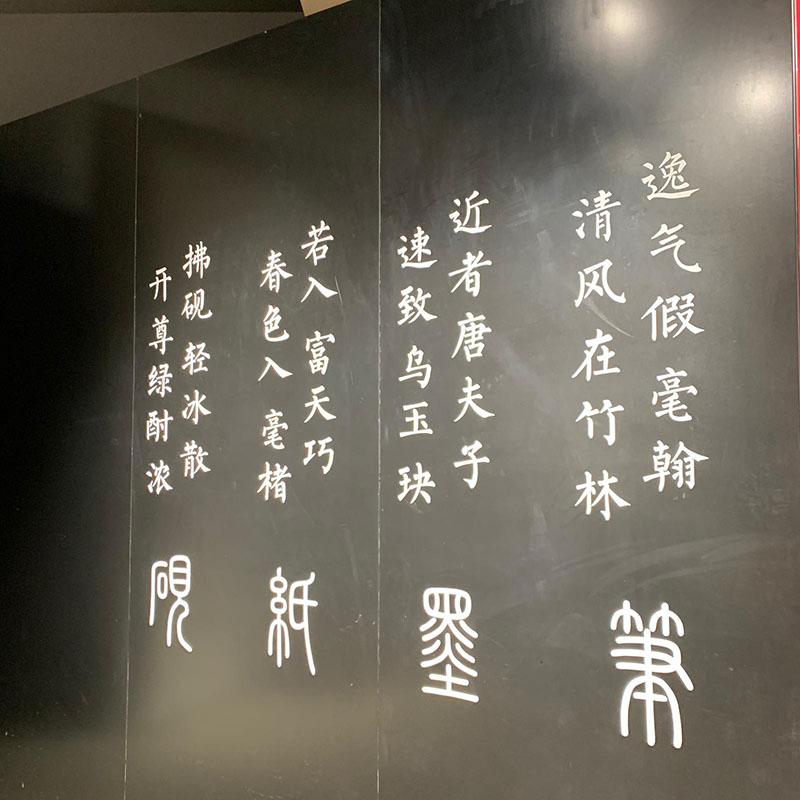 逸气假毫翰
清风在竹林
筆
近者唐夫子
速致乌玉玦
墨
若入富天巧
春色入毫楮
紙
拂砚轻冰散
开尊绿酎浓
硯